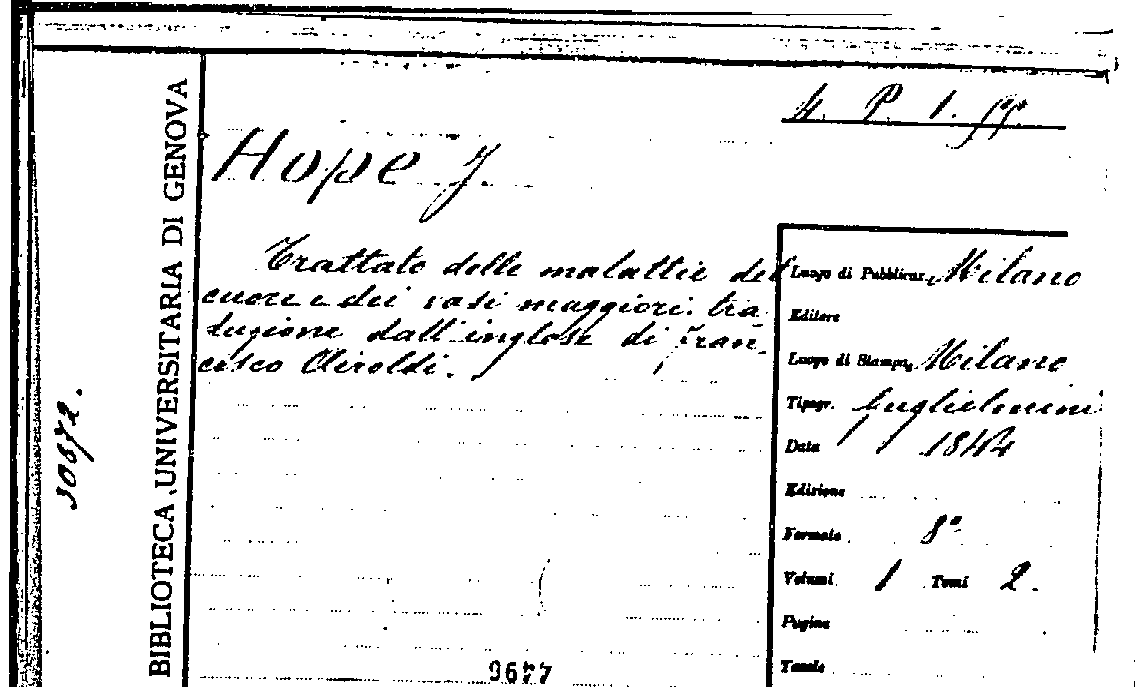 4. P. 1. 99.
Hope J.
Trattato delle malattie del
cuore e dei vasi maggiori. tra
duzione dall'inglese di Fran-
cesco Airoldi.
Luogo di Pubblicaz. Milano
Editore
Luogo di Stampa, Milano
Tipogr. Guglielmini
Data 1844
Edizione
Formato 8°
Volumi 1 Tomi 2.
Pagine
Tavole
BIBLIOTECA UNIVERSITARIA DI GENOVA
30672.
9677